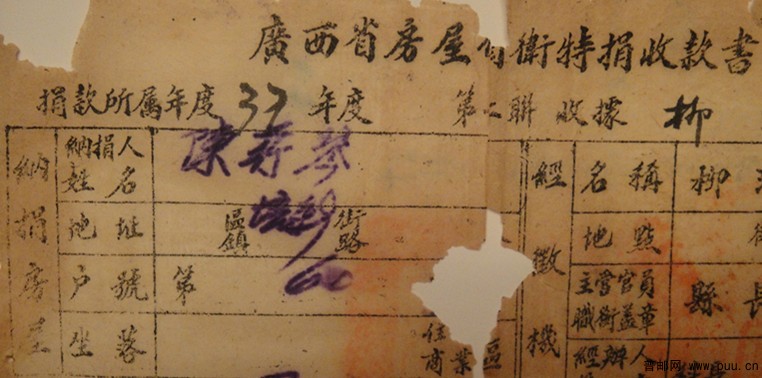 廣西省房屋自衛特捐收款書
捐款所属年度37年度 第二聯 收據 柳
納捐房主
納捐人姓名
陳
地址
區鎮 街路
户號 第
60
坐落
住商業區
經徵機
名稱 柳
地點
主管官員職銜蓋章 縣長
經辦人
普邮网 www.puu.cn